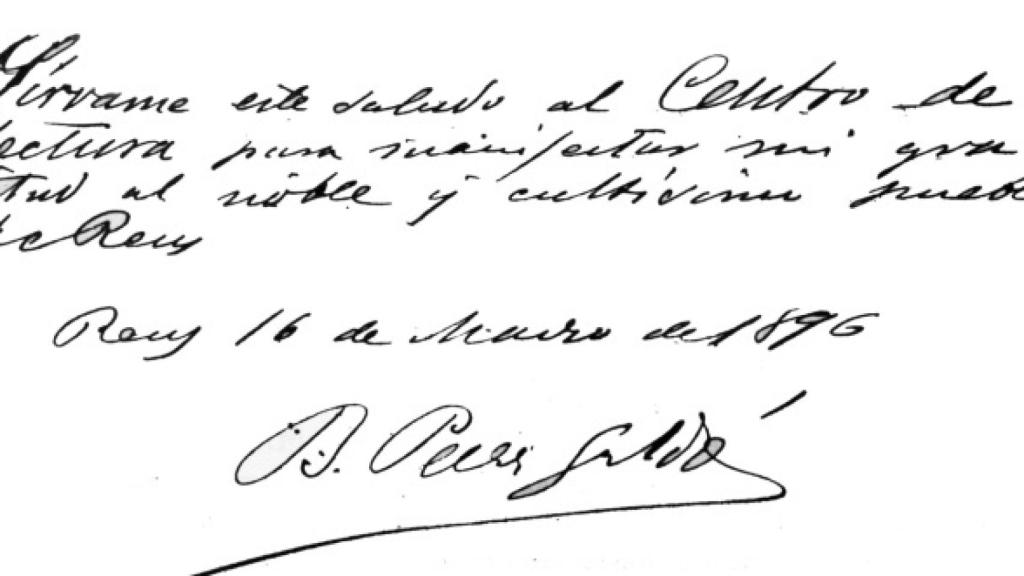 Sírvame este saludo al Centro de
Lectura para manifestar mi gra
titud al noble y cultísimo pueblo
de Reus
Reus 16 de Marzo de 1896
B. Pérez Galdós